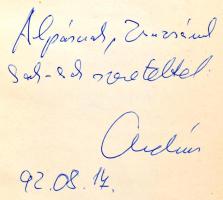 Alpárnak, Zsuzsának
sok-sok szeretettel
92.08.17.